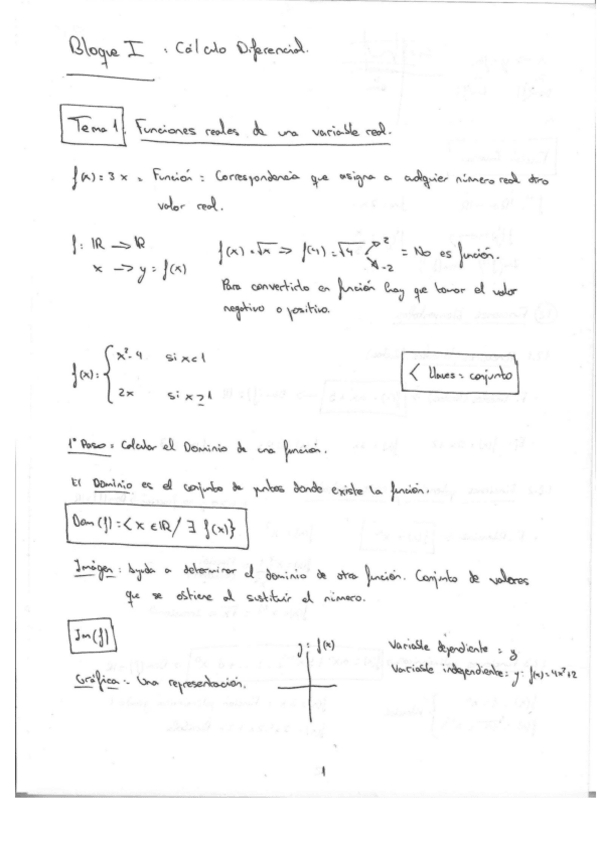 Bloque I : Cálculo Diferencial.
Tema 1. Funciones reales de una variable real.
f(x) = 3x = Función : Correspondencia que asigna a cualquier número real otro
valor real.
f: ℝ → ℝ
x → y = f(x)
f(x) = √x ⇒ f(4) = √4 ↗ 2 ↘ -2 = No es función.
Para convertirlo en función hay que tomar el valor
negativo o positivo.
f(x) = { x² - 4 si x < 1
2x si x ≥ 1
{ Llaves = conjunto
1º Paso = Calcular el Dominio de una función.
El Dominio es el conjunto de puntos donde existe la función.
Dom (f) = { x ∈ ℝ / ∃ f(x) }
Imágen : Ayuda a determinar el dominio de otra función. Conjunto de valores
que se obtiene al sustituir el número.
Im(f)
y = f(x)
Variable dependiente = y
Variable independiente = y = f(x) = 4x² + 2
Gráfica = Una representación.
1